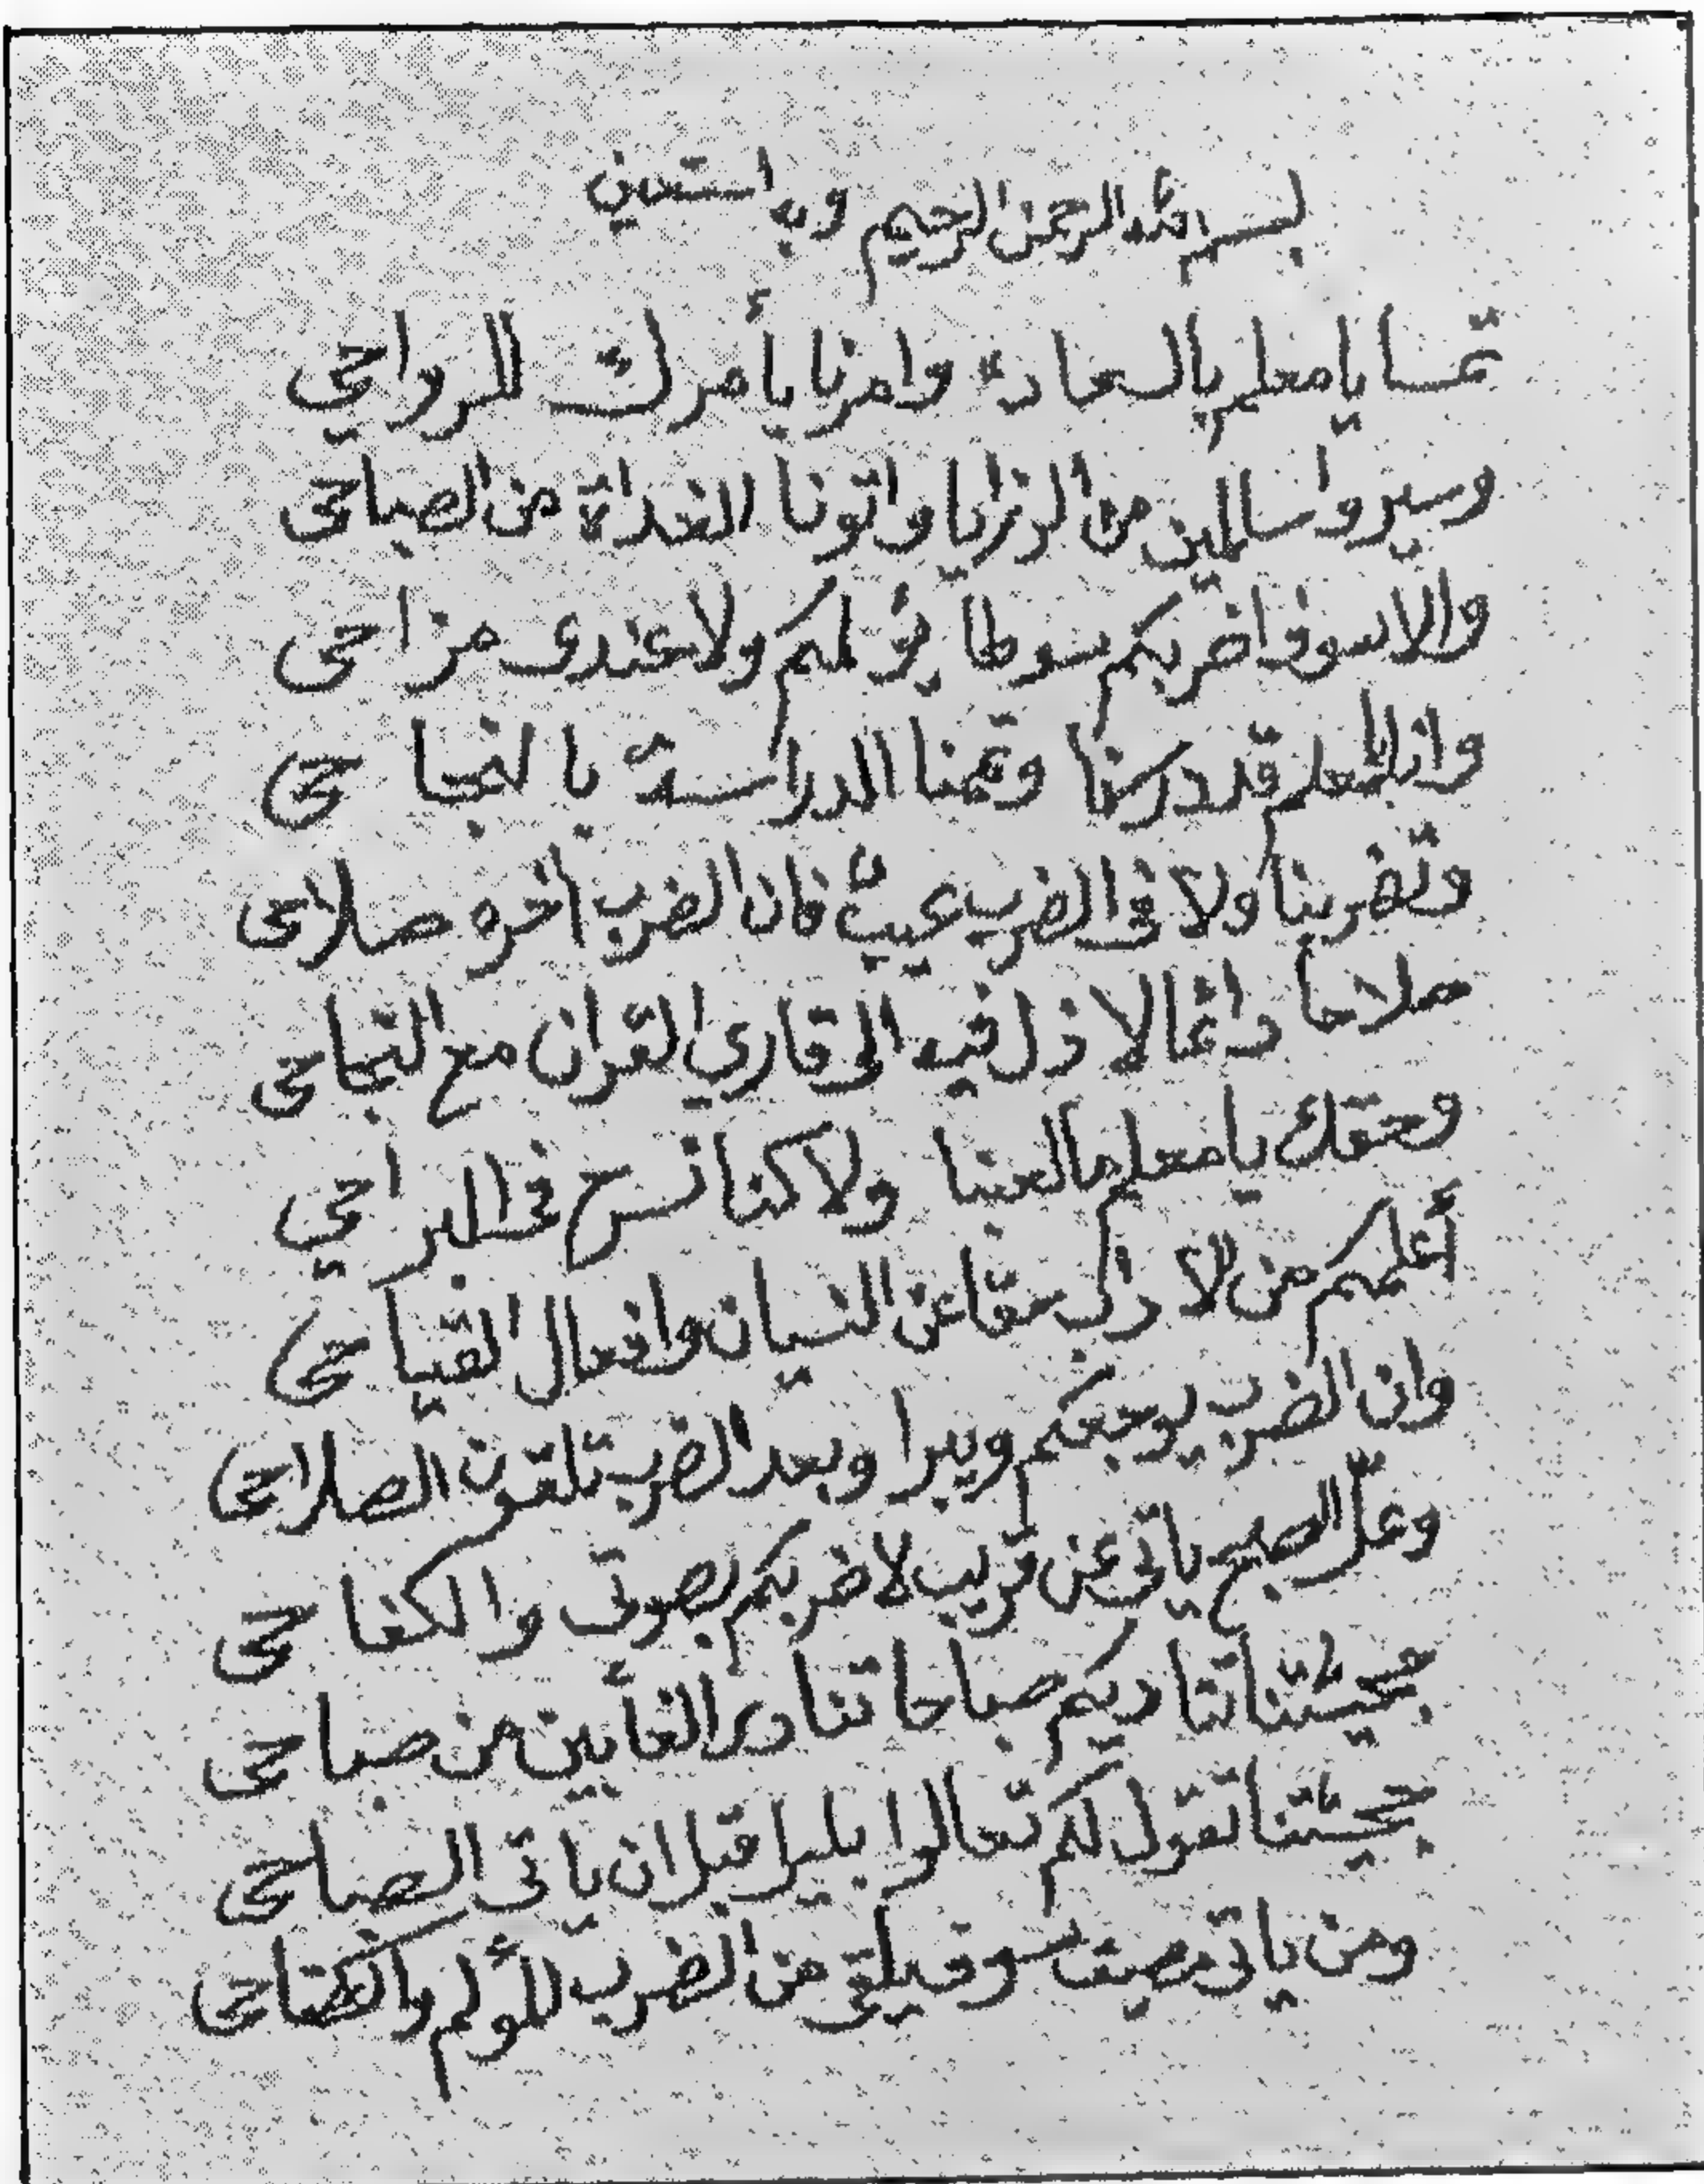 بسم الله الرحمن الرحيم وبه استعين
تمسا يا معلم بالسعادة وامرنا يأمرك للرواحي
وسيروا سالمين من الرزايا واتونا الغداة من الصباحي
والا سوف اضربكم بسوط يؤلمكم ولا عندى مزاحى
وانا يا معلم قد درسنا وتمنا الدراسة بالنجاحي
وتضربنا ولا في الضرب عيبٌ فان الضرب آخره صلاحى
صلاحا دائما لا ذل فيه الى قاري القرآن مع النجاحى
وحقك يا معلم ما لعبنا ولا كنا نسرح في البراحي
أعلمكم من الآداب حقا عن النسيان وافعال القباحى
وان الضرب يوجعكم ويبرا وبعد الضرب تلقون الصلاحى
وعلّ الصبح ياتي عن قريب لاضربكم بصوتي والكفاحي
بجيئتنا تناديكم صباحا تنادى الغائبين من صباحى
بجيئتنا تقول لكم تعالوا بليل قبل ان ياتى الصباحى
ومن ياتى سوف يلقى من الضرب المؤلم والكفاحى